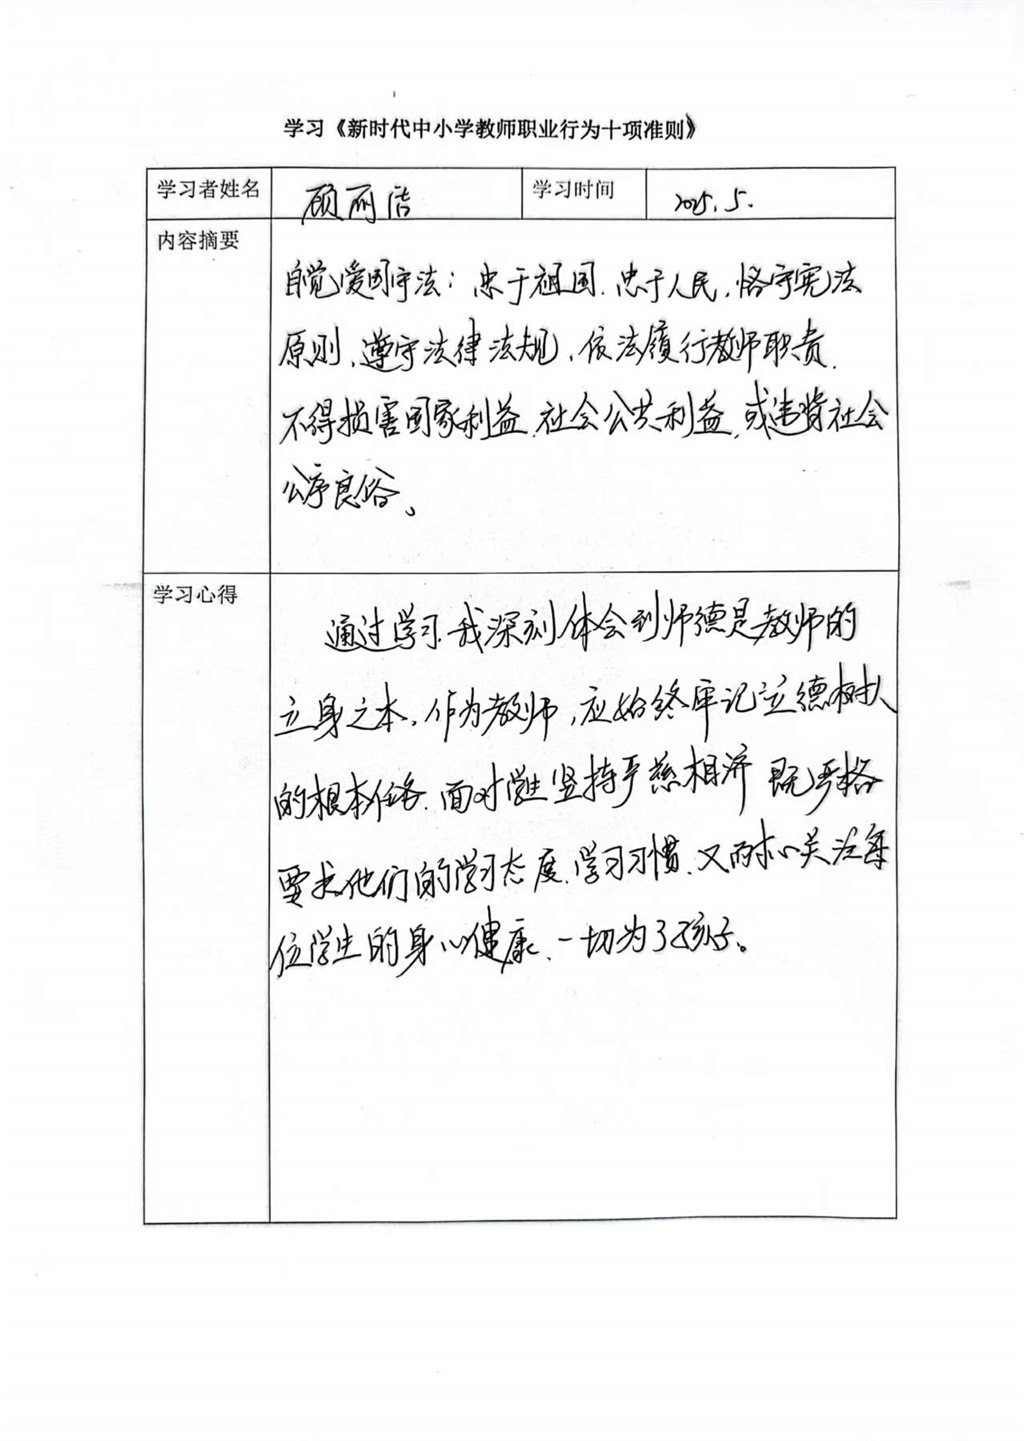 学习《新时代中小学教师职业行为十项准则》
学习者姓名 顾丽洁 学习时间 2025.5.
内容摘要
自觉爱国守法：忠于祖国.忠于人民,恪守宪法
原则,遵守法律法规,依法履行教师职责.
不得损害国家利益.社会公共利益,或违背社会
公序良俗。
学习心得
通过学习.我深刻体会到师德是教师的
立身之本,作为教师,应始终牢记立德树人
的根本任务.面对学生坚持严慈相济 既严格
要求他们的学习态度.学习习惯.又耐心关注每
位学生的身心健康、一切为了孩子。